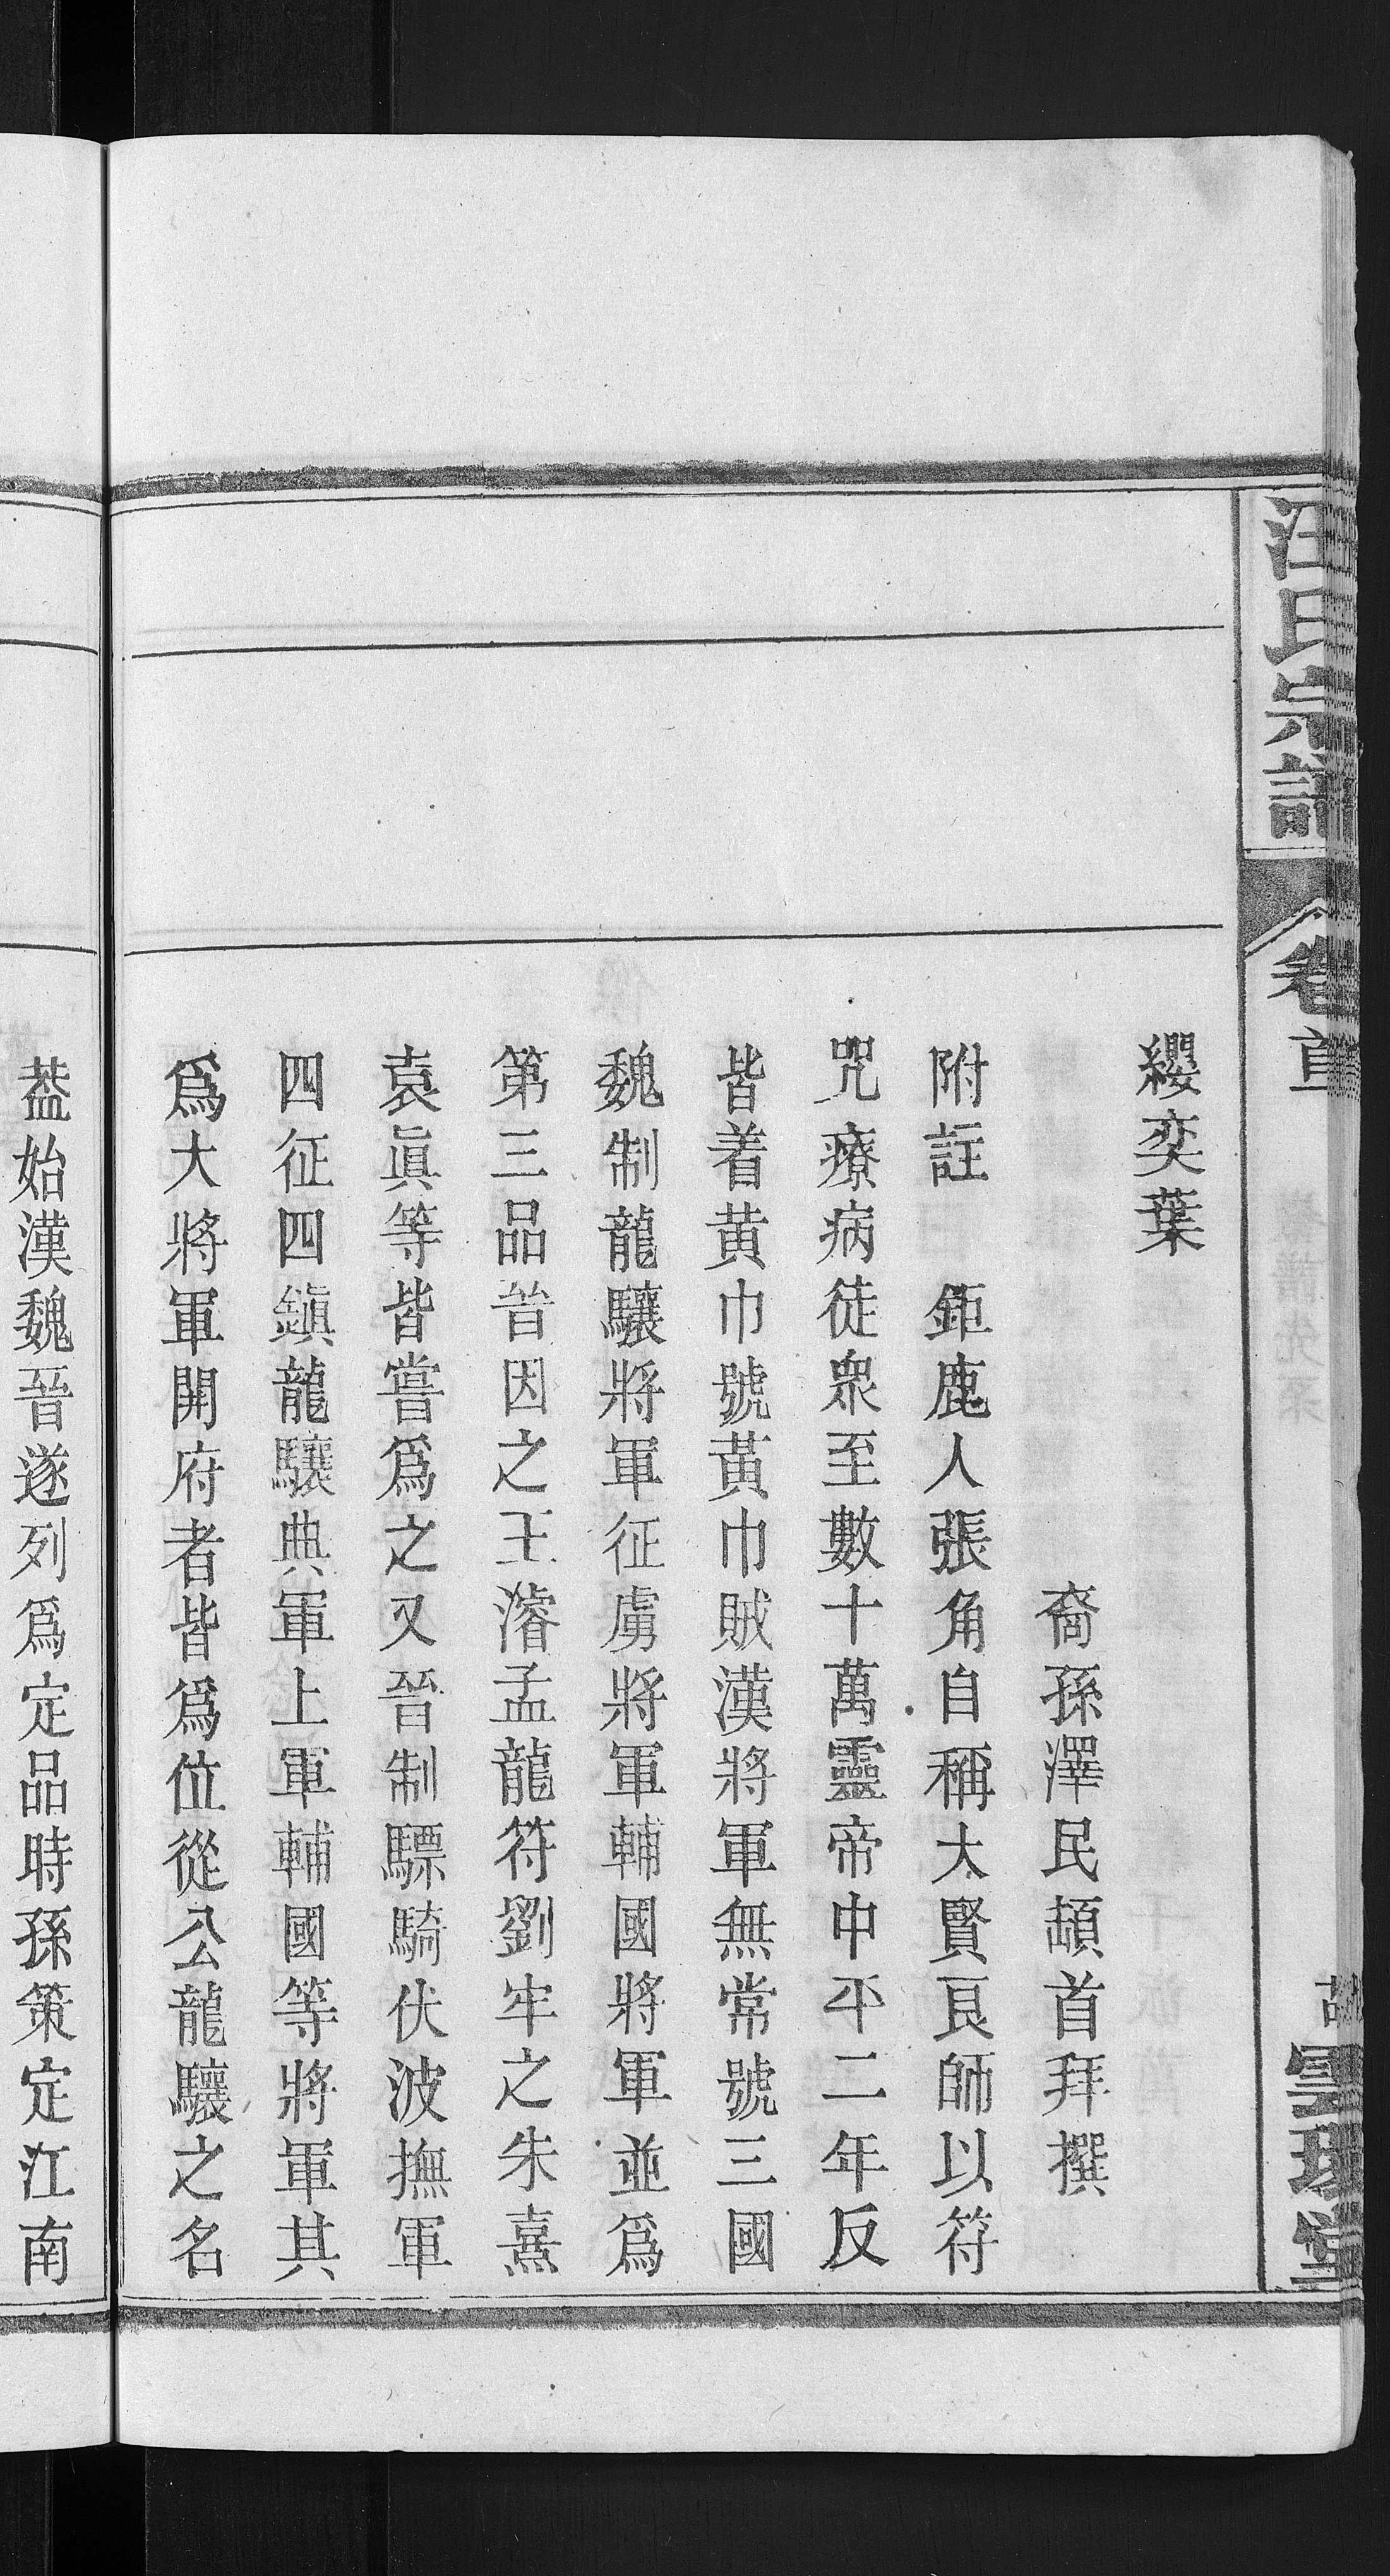 汪氏宗譜
卷首
纓奕葉
裔孫澤民頓首拜撰
附註　鉅鹿人張角自稱大賢良師以符
咒療病徒衆至數十萬靈帝中平二年反
皆着黄巾號黃巾賊漢將軍無常號三國
魏制龍驤將軍征虜將軍輔國將軍並爲
第三品晉因之王濬孟龍符劉牢之朱熹
袁眞等皆嘗爲之又晉制驃騎伏波撫軍
四征四鎭龍驤典軍上軍輔國等將軍其
爲大將軍開府者皆爲位從公龍驤之名
葢始漢魏晉遂列爲定品時孫策定江南